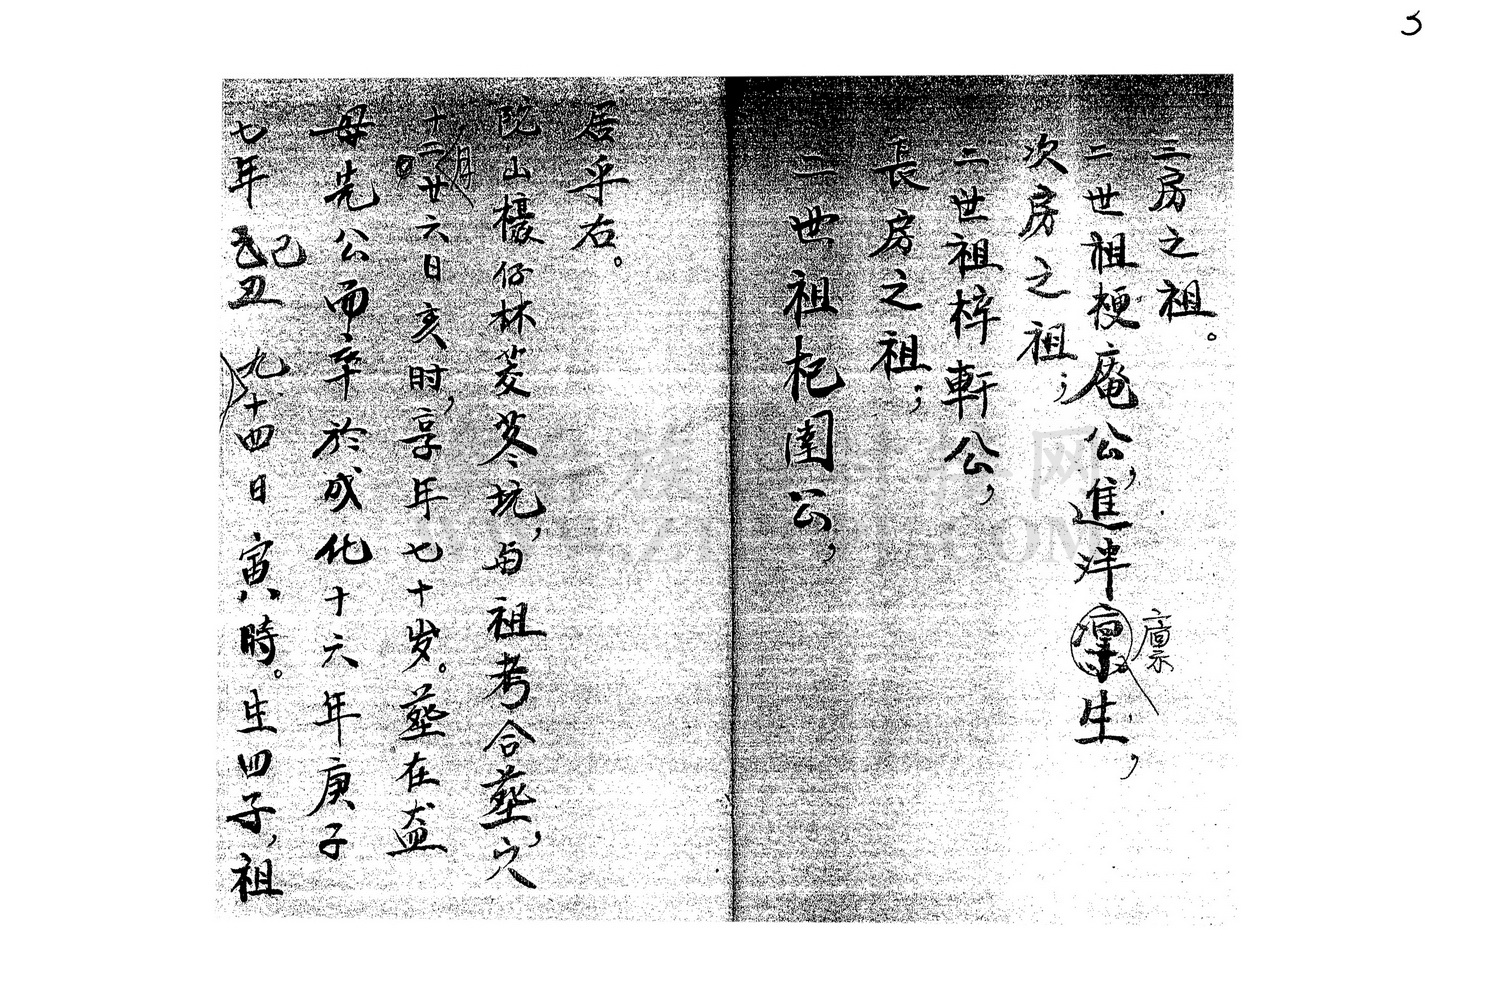 3
七年己丑九十四日寅時。生四子,祖
母先公而卒於成化十六年庚子
十二月廿六日亥时,享年七十岁。葬在盆
院山欓仔林菱苳坑,与祖考合葬,穴
居乎右。
二世祖杞園公,
長房之祖;
二世祖梓軒公,
次房之祖;
二世祖梗庵公,進泮廩生,
三房之祖。